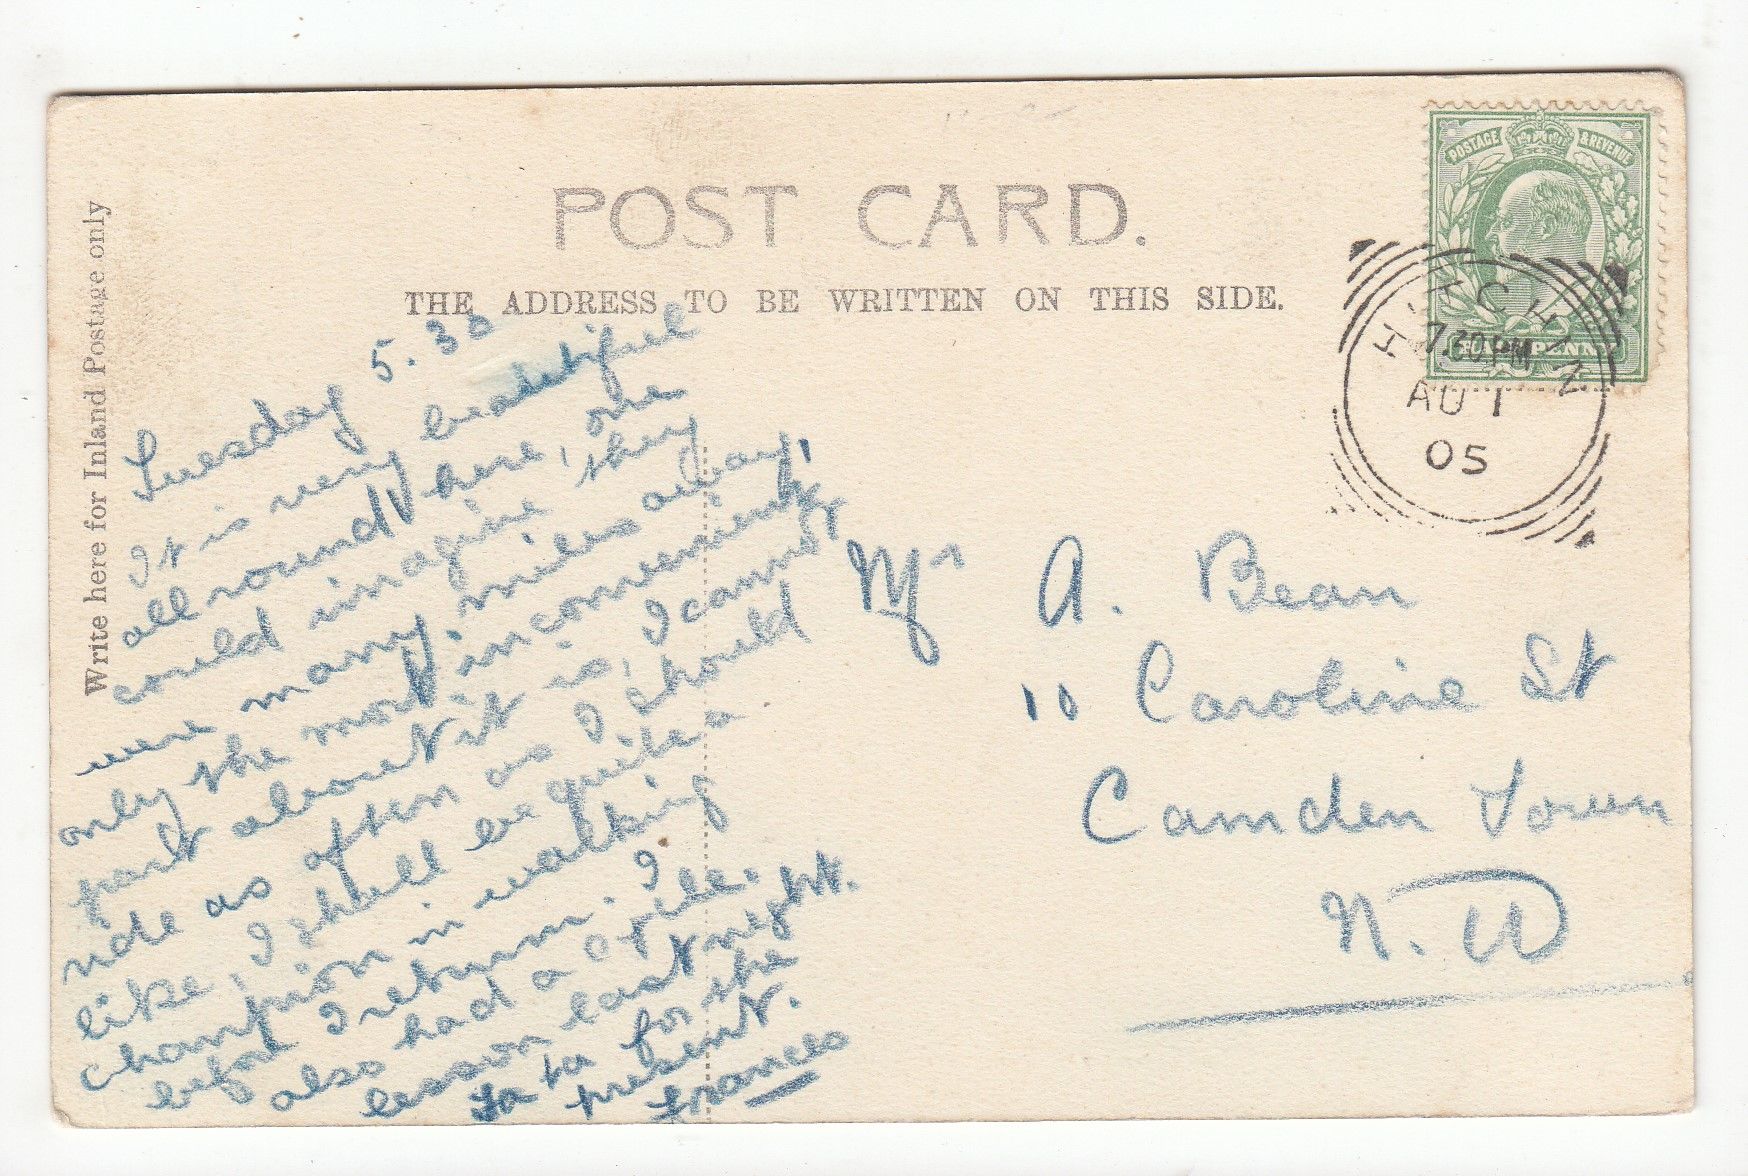 POST CARD.
THE ADDRESS TO BE WRITTEN ON THIS SIDE.
Write here for Inland Postage only
POSTAGE & REVENUE
HITCHIN
7.30 PM
AU 1
05
Tuesday 5.30
It is very beautiful
all round here, one
could imagine they
were many miles away,
only the most inconvenient
part about it is, I cannot
ride as often as I should
like, I shall be quite a
champion in walking
before I return. I
also had a cycle
lesson last night.
Ta ta for the
present.
Frances
Mr A. Bean
Caroline St
Camden Town
N.W